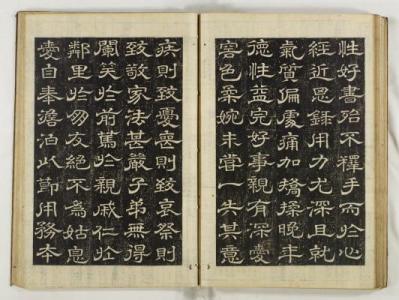 性好書殆不釋手而於心
經近思錄用力尤深且就
氣質偏處痛加矯揉晚年
德性益完好事親有深愛
容色柔婉未嘗一失其意
疾則致憂喪則致哀祭則
致敬家法甚嚴子弟無得
笑於前篤於親戚仁於
鄰里於朋友絕不為姑息
愛自奉澹泊以節用務本